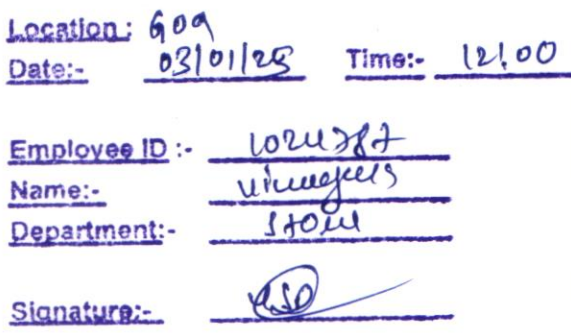 Location: Goa
Date:- 03/01/25 Time:- 12:00
Employee ID :- 1024787
Name:-
Department:- Store
Signature:-